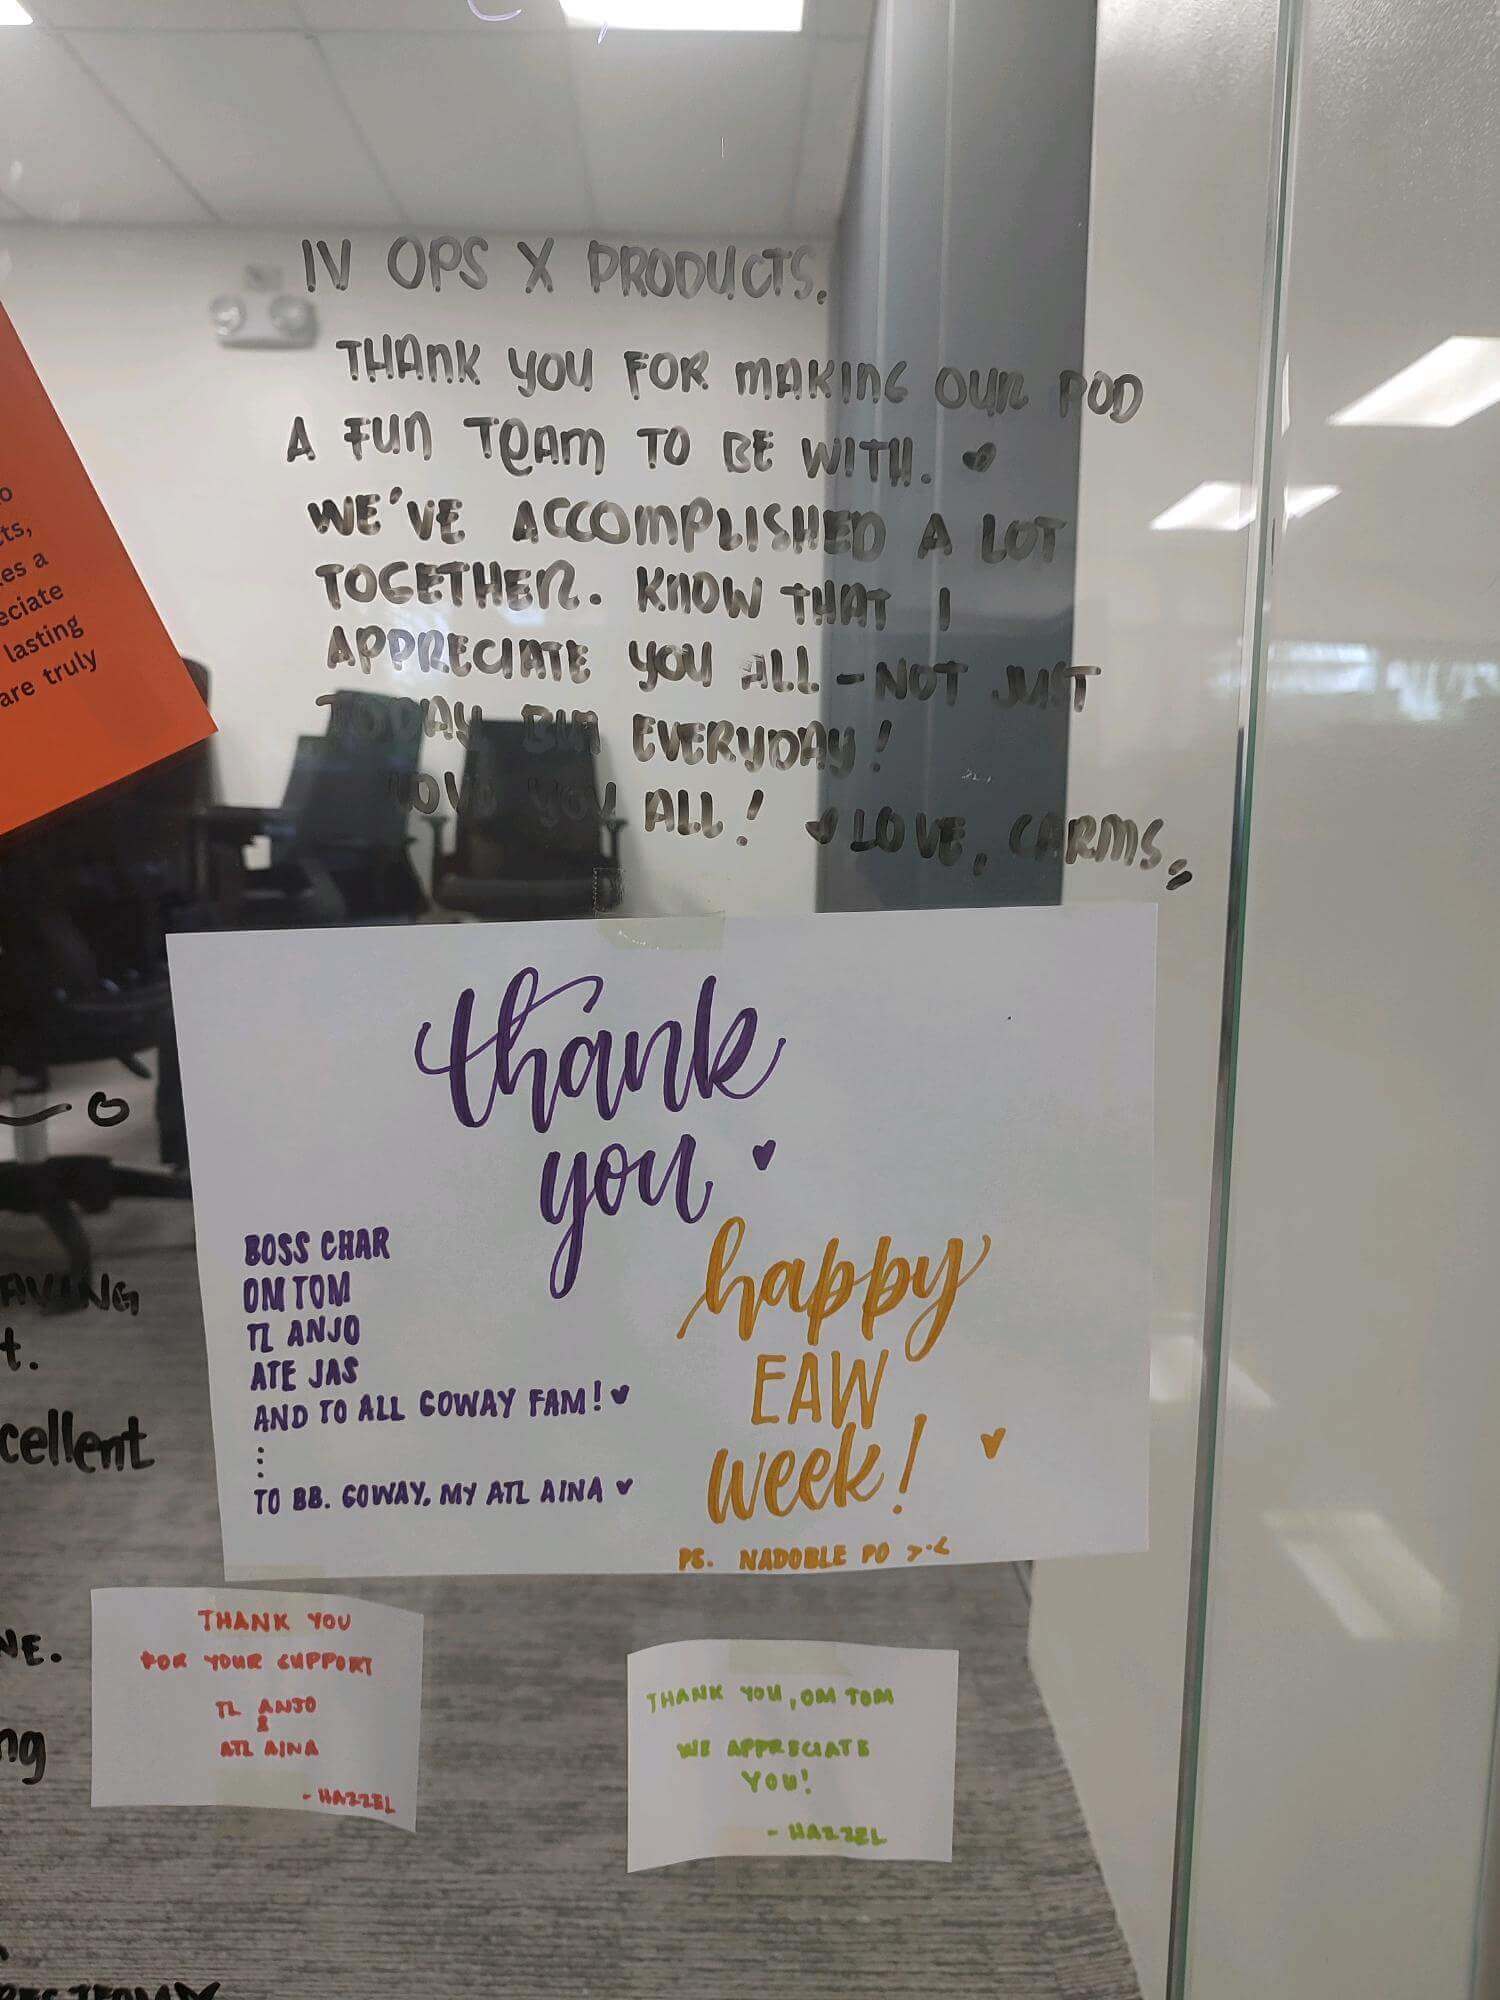 IV OPS X PRODUCTS,
THANK YOU FOR MAKING OUR POD
A FUN TEAM TO BE WITH. ♥
WE'VE ACCOMPLISHED A LOT
TOGETHER. KNOW THAT I
APPRECIATE YOU ALL - NOT JUST
TODAY BUT EVERYDAY!
LOVE YOU ALL! ♥ LOVE, CARMS
cts,
es a
eciate
lasting
are truly
thank
you ♥
BOSS CHAR
OM TOM
TL ANJO
ATE JAS
AND TO ALL GOWAY FAM! ♥
:
TO BB. GOWAY, MY ATL AINA ♥
happy
EAW
week! ♥
PS. NADOBLE PO >.<
AVING
t.
cellent
NE.
ng
THANK YOU
FOR YOUR SUPPORT
TL ANJO
&
ATL AINA
- HAZZEL
THANK YOU, OM TOM
WE APPRECIATE
YOU!
- HAZZEL